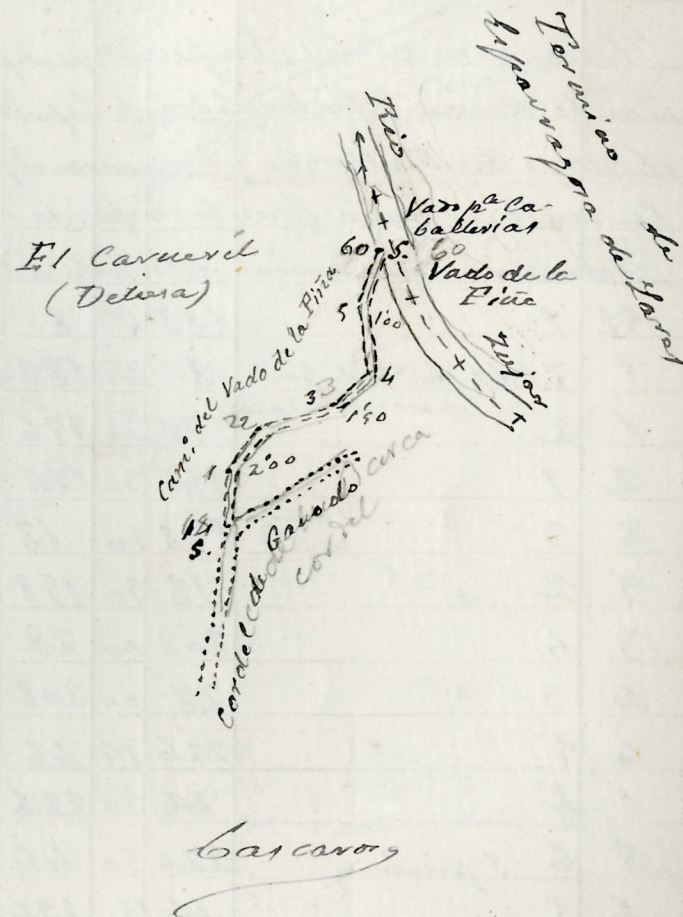 Termino de
Esparragosa de Lares
Rio
Vado pª Ca-
ballerias
60 5. 60
Vado de la
Piña
El Carneril
(Dehesa)
Cam.º del Vado de la Piña
5
100
4
3 3
190
22
1
200
5.
Zujar
Cordel de Ganado
cerca
cordel